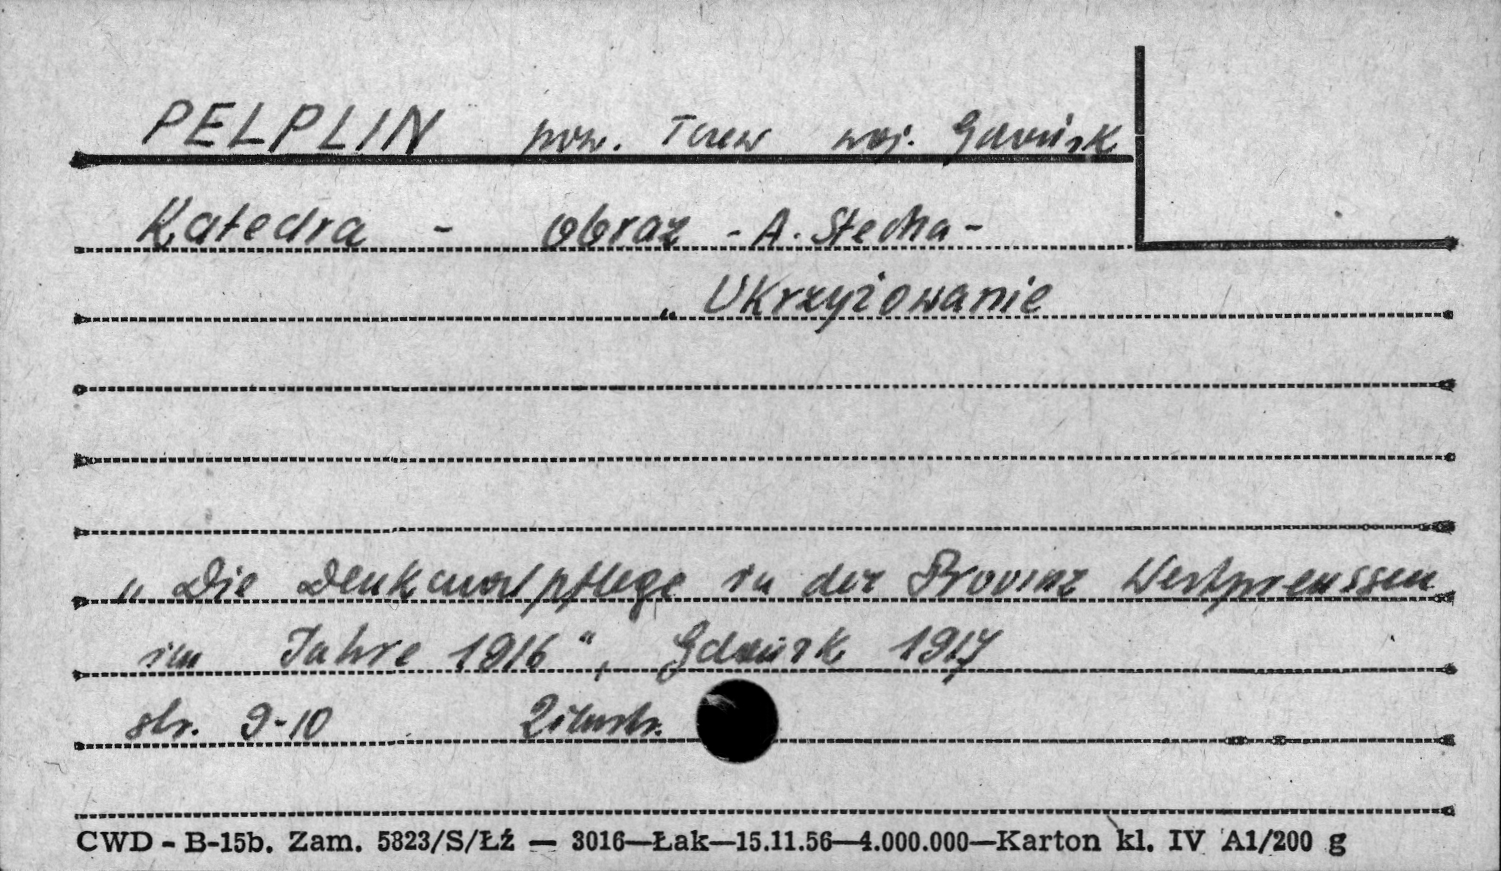 PELPLIN pow. Tczew woj. Gdańsk
Katedra - obraz - A. Stecha -
„Ukrzyżowanie
„Die Denkmalpflege in der Provinz Westpreussen
im Jahre 1916", Gdańsk 1917
str. 9-10 2 ilustr.
CWD - B-15b. Zam. 5823/S/Łź — 3016—Łak—15.11.56—4.000.000—Karton kl. IV A1/200 g